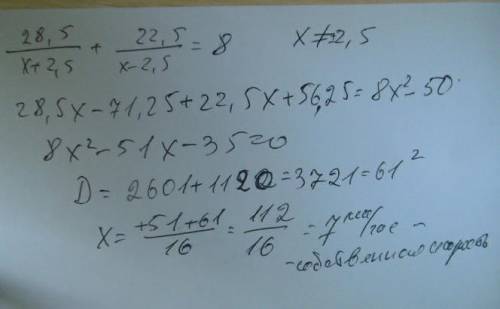 28,5/(x+2,5) + 22,5/(x-2,5) = 8 x≠2,5
28,5x-71,25+22,5x+56,25=8x²-50
8x²-51x-35=0
D=2601+1120=3721=61²
x=(+51+61)/16=112/16=7 км/час -
-собственная скорость